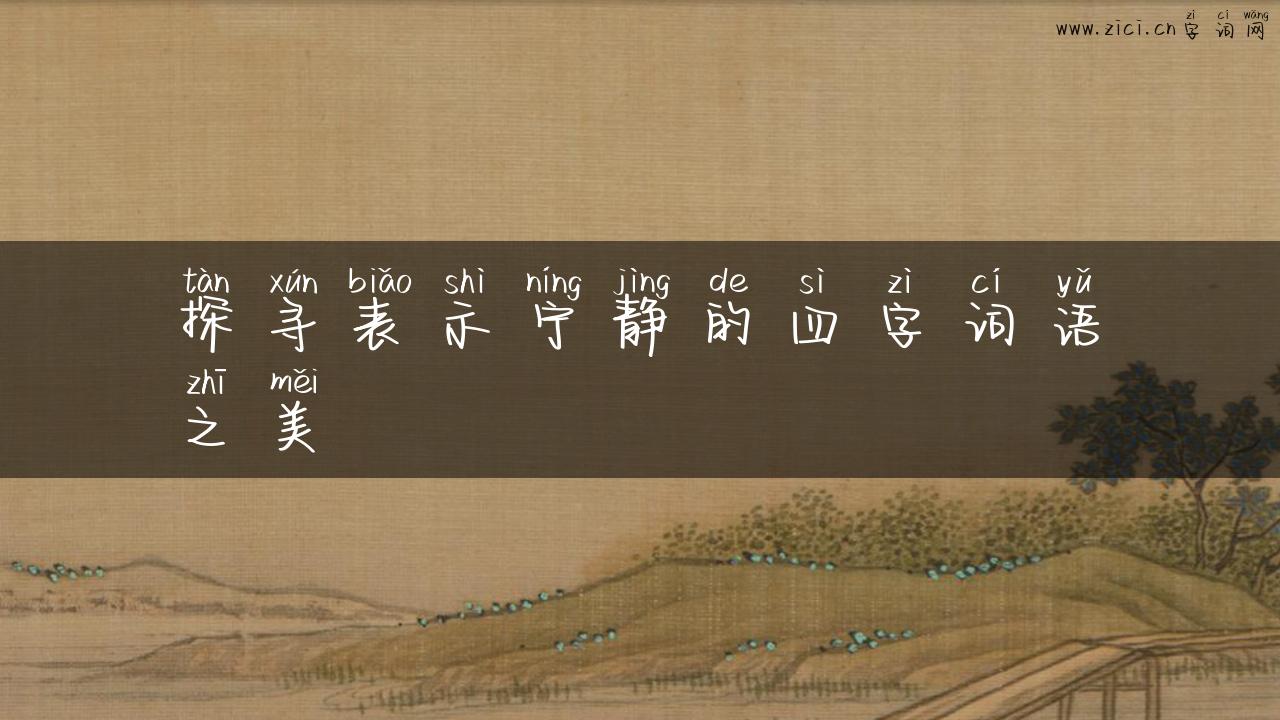 zì cí wǎng
www.zici.cn字词网
tàn xún biǎo shì níng jìng de sì zì cí yǔ
探寻表示宁静的四字词语
zhī měi
之美